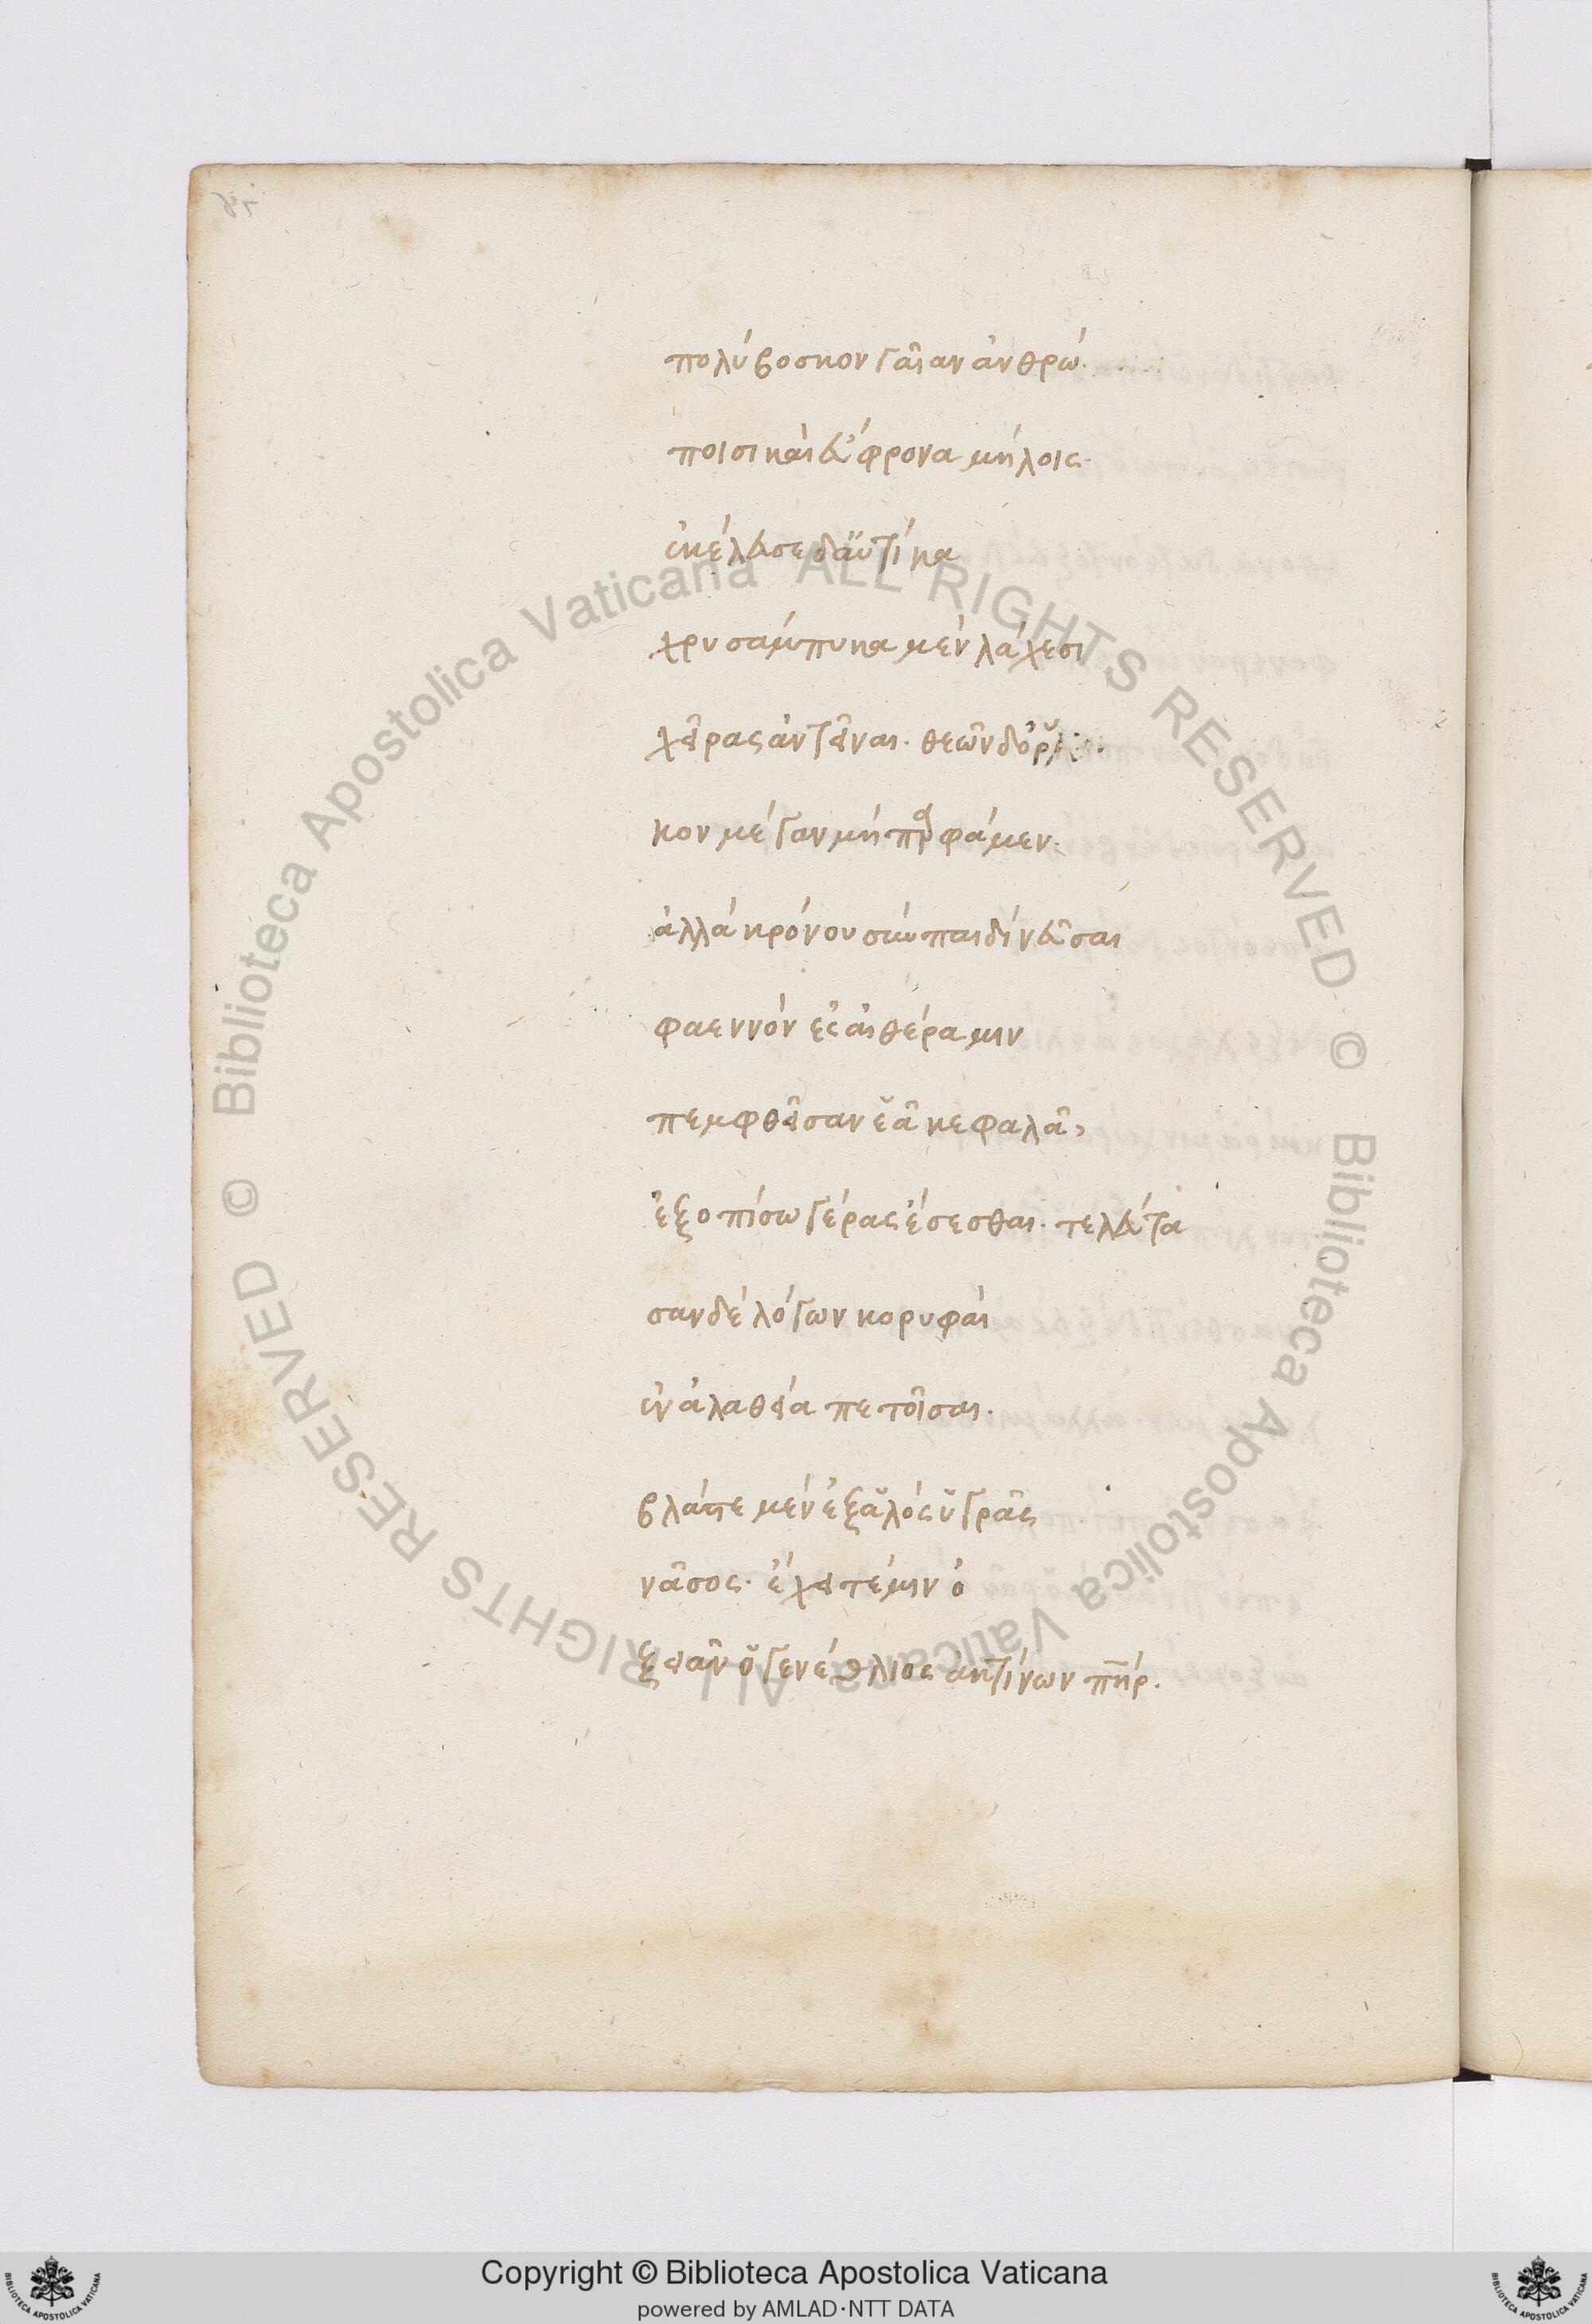 πολύβοσκον γαῖαν ἀνθρώ
ποισι καὶ εὔφρονα μήλοις.
ἐκέλευσε δ' αὐτίκα
χρυσάμπυκα μὲν λάχεσι
χεῖρας ἀντεῖναι. θεῶν δ' ὅρ
κον μέγαν μὴ παρφάμεν.
ἀλλὰ κρόνου σὺν παιδὶ νεῦσαι
φαεννὸν ἐς αἰθέρα μιν
πεμφθεῖσαν ἑᾶ κεφαλᾶ,
ἐξοπίσω γέρας ἔσεσθαι. τελεύτα
σαν δὲ λόγων κορυφαὶ
ἐν ἀλαθεία πετοῖσαι.
βλάστε μὲν ἐξ ἁλὸς ὑγρᾶς
νᾶσος. ἔχει τέ μιν ὀ
ξειᾶν ὁ γενέθλιος ἀκτίνων πηρ.
Copyright © Biblioteca Apostolica Vaticana
powered by AMLAD·NTT DATA
© Biblioteca Apostolica Vaticana ALL RIGHTS RESERVED © Biblioteca Apostolica Vaticana ALL RIGHTS RESERVED